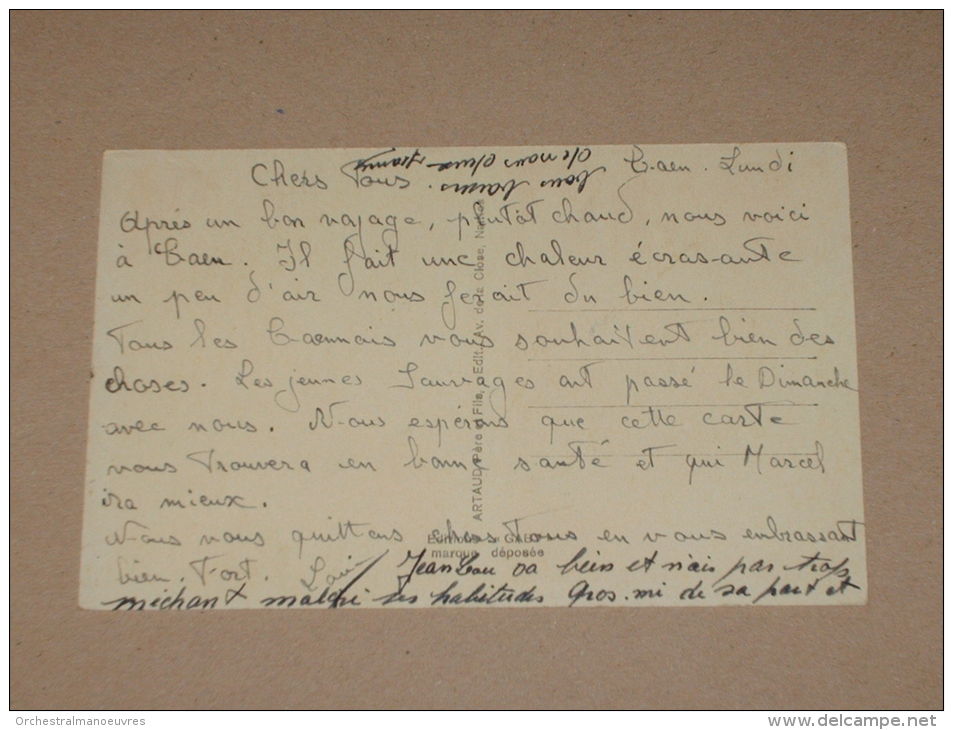 Caen. Lundi
Chers Tous.
Après un bon voyage, plutôt chaud, nous voici
à Caen. Il fait une chaleur écras-ante
un peu d'air nous ferait du bien.
Tous les Caennais vous souhaitent bien des
choses. Les jeunes Sauvages ont passé le Dimanche
avec nous. Nous espérons que cette carte
vous trouvera en bonne santé et qui Marcel
ira mieux.
Nous vous quittons chers Tous en vous enbrassant
bien. Fort.
JeanLou va bien et n'ais pas trop
méchant malgré ses habitudes Gros. mi de sa part et
bons baisers.
de nous deux
ARTAUD Père et Fils, Edit., Av. de la Close, Nantes
marque déposée
Orchestralmanoeuvres
delcampe.net